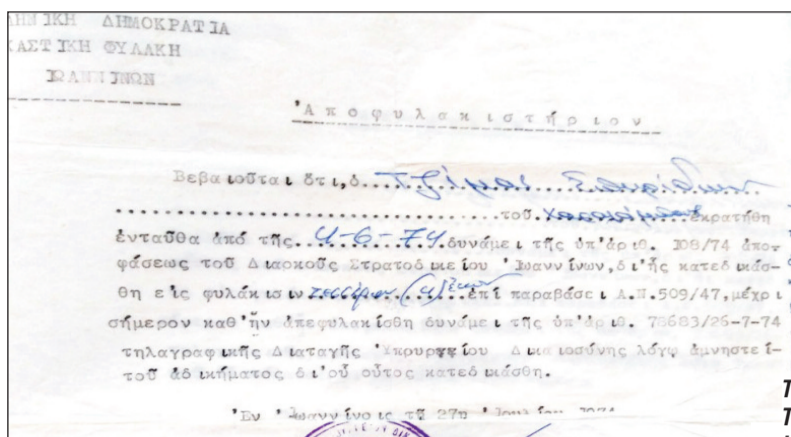 ΗΝΙΚΗ ΔΗΜΟΚΡΑΤΙΑ
ΚΑΣΤΙΚΗ ΦΥΛΑΚΗ
ΙΩΑΝΝΙΝΩΝ
Ἀποφυλακιστήριον
Βεβαιοῦται ὅτι,ὁ
τοῦ ἐκρατήθη
ἐνταῦθα ἀπό τῆς 4-6-74 δυνάμει τῆς ὑπ'ἀριθ. 108/74 ἀπο-
φάσεως τοῦ Διαρκοῦς Στρατοδικείου Ἰωαννίνων,δι'ἧς κατεδικάσ-
θη εἰς φυλάκισιν τεσσάρων (4) ἐτῶν ἐπί παραβάσει Α.Ν.509/47,μέχρι
σήμερον καθ'ἥν ἀπεφυλακίσθη δυνάμει τῆς ὑπ'ἀριθ. 78683/26-7-74
τηλαγραφικῆς Διαταγῆς Ὑπουργείου Δικαιοσύνης λόγῳ ἀμνηστεί-
τοῦ ἀδικήματος δι'οὗ οὗτος κατεδικάσθη.
Ἐν Ἰωαννίνοις τῇ 27ῃ Ἰουλίου 1974